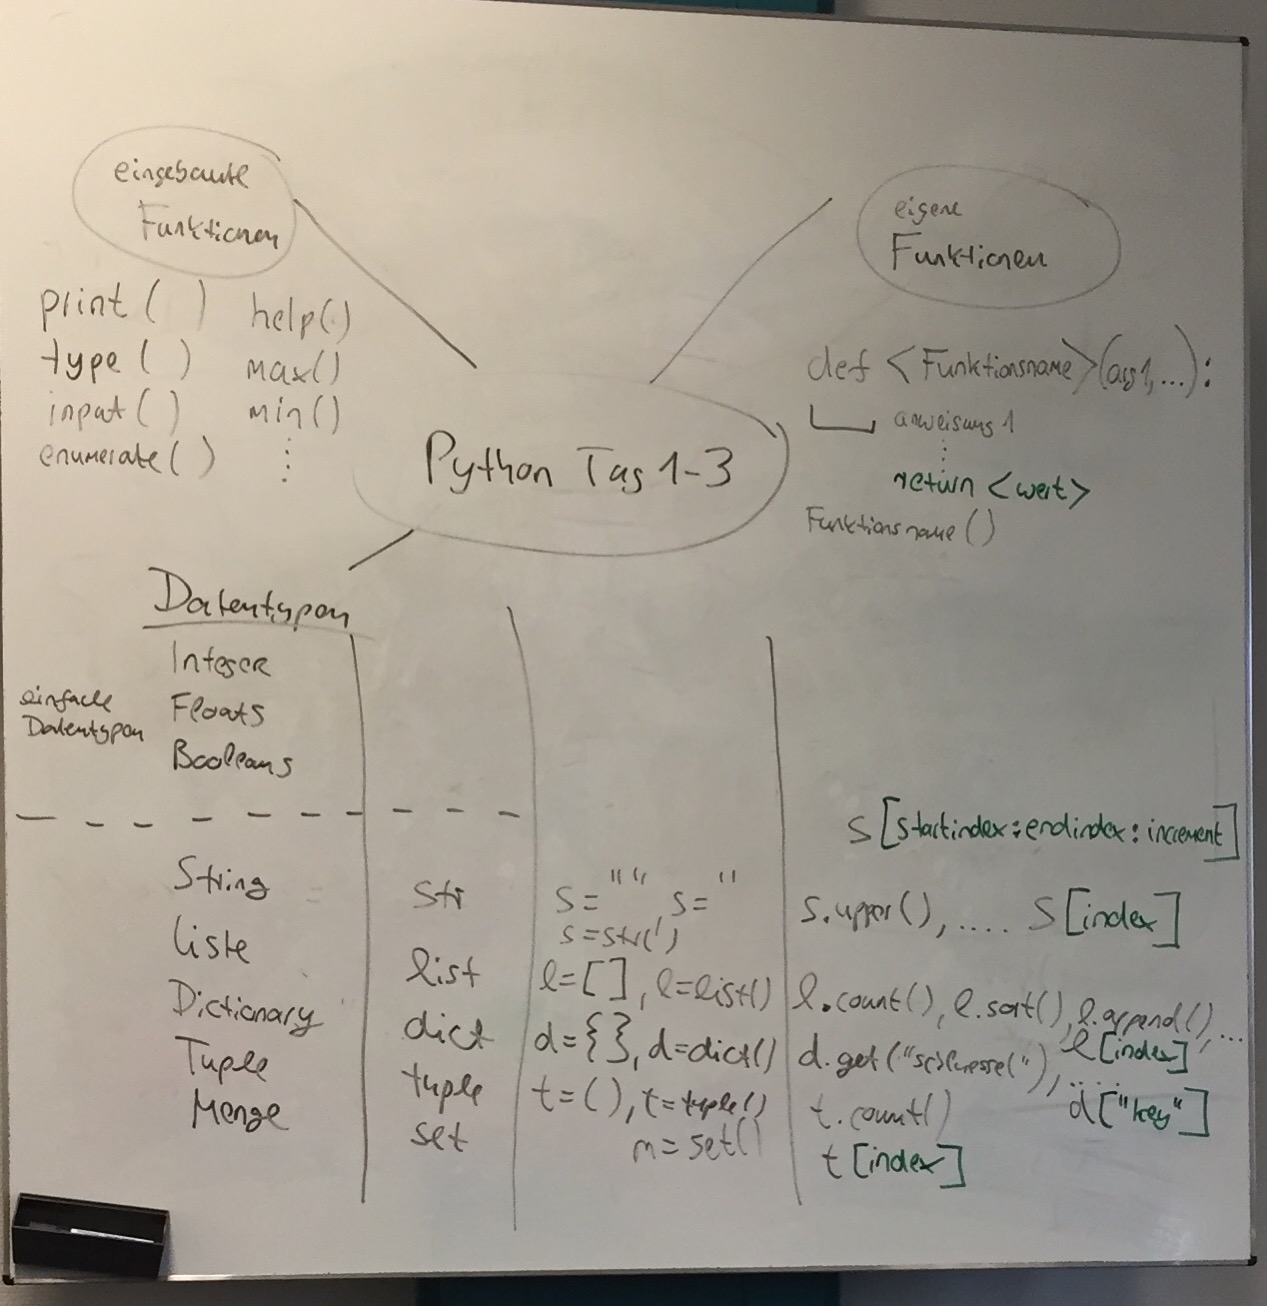 eingebaute
Funktionen
print ( ) help()
type ( ) max()
input ( ) min()
enumerate ( )
eigene
Funktionen
def <Funktionsname>(arg1,...):
anweisung 1
return <wert>
Funktionsname ()
Python Tag 1-3
Datentypen
einfache
Datentypen
Integer
Floats
Booleans
s[startindex:endindex:increment]
String str s="", s=''
s=str() s.upper(), .... s[index]
Liste list l=[], l=list() l.count(), l.sort(), l.append(), ...
l[index]
Dictionary dict d={}, d=dict() d.get("schluessel"), .....
d["key"]
Tuple tuple t=(), t=tuple() t.count()
t[index]
Menge set m=set()